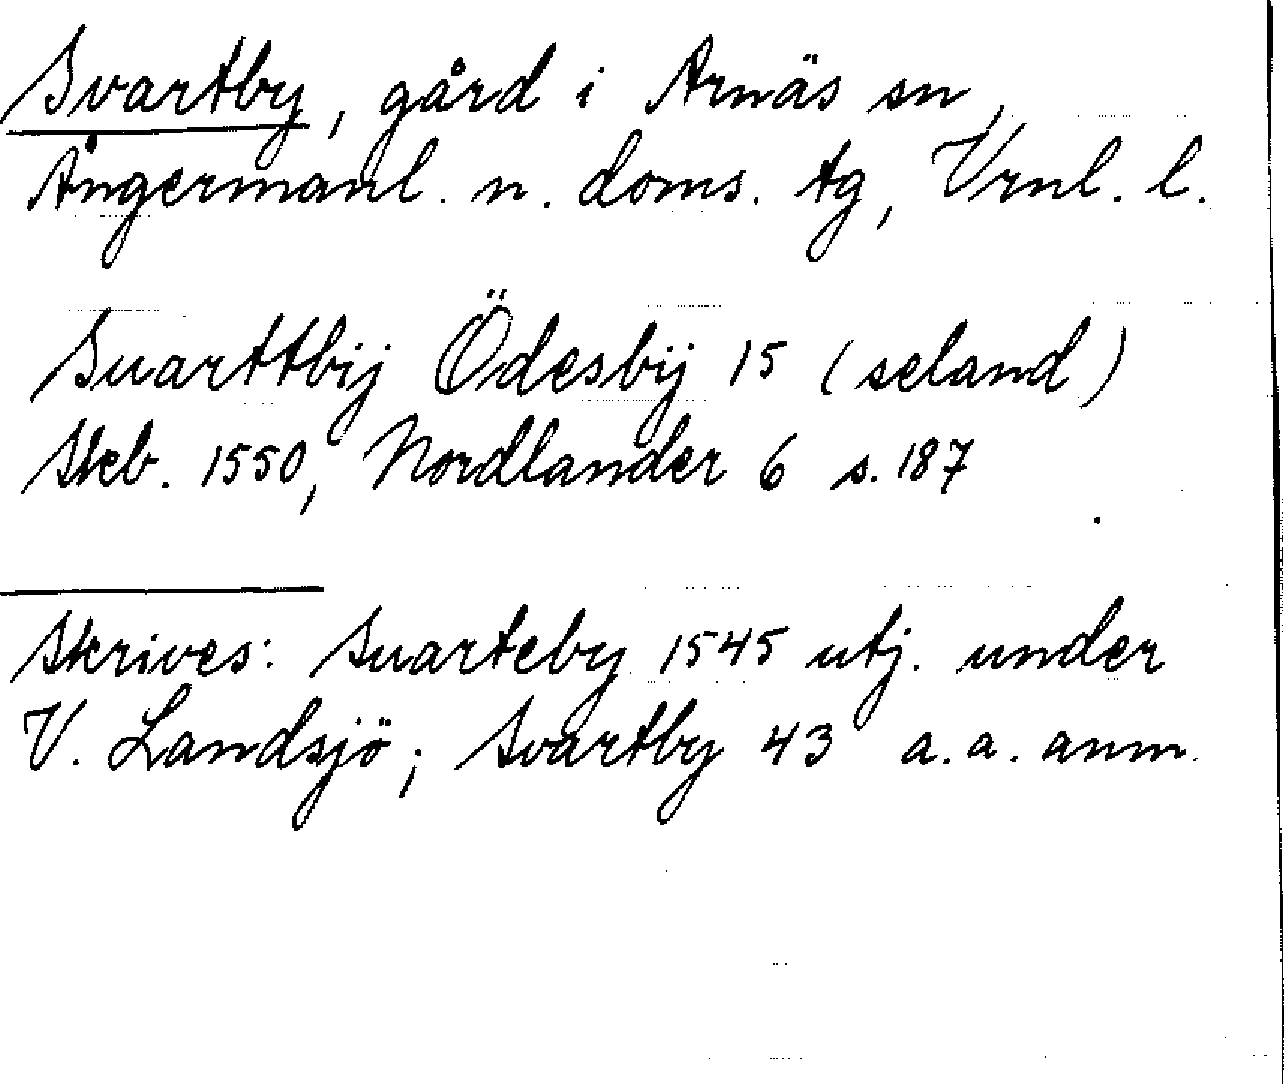 Svartby, gård i Arnäs sn,
Ångermanl. n. doms. tg, Vrnl. l.
Suarttbij Ödesbij 15 (seland)
Skeb. 1550, Nordlander 6 s. 187
Skrives: Suarteby 1545 utj. under
V. Landsjö; Svartby 43 a.a. anm.